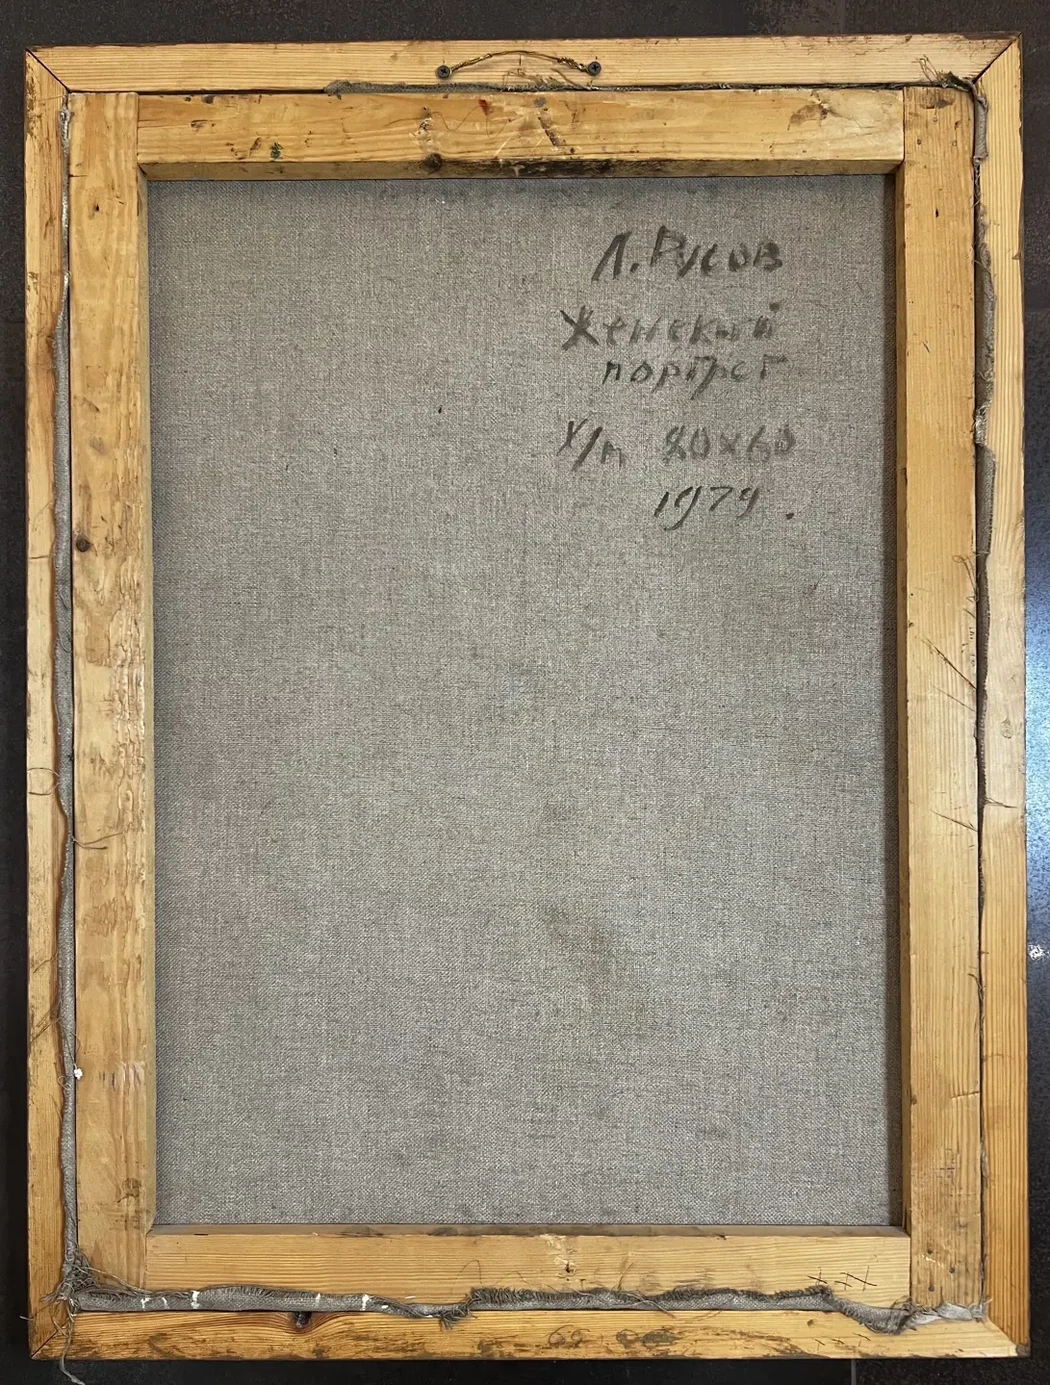 Л. Русов
Женский
портрет
х/м 80х60
1979.